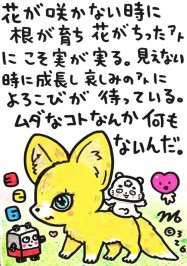 花が咲かない時に
根が育ち 花がちったｱﾄ
に こそ実が実る。見えない
時に成長し 哀しみのｱﾄに
よろこびが 待っている。
ムダなコトなんか何も
ないんだ。